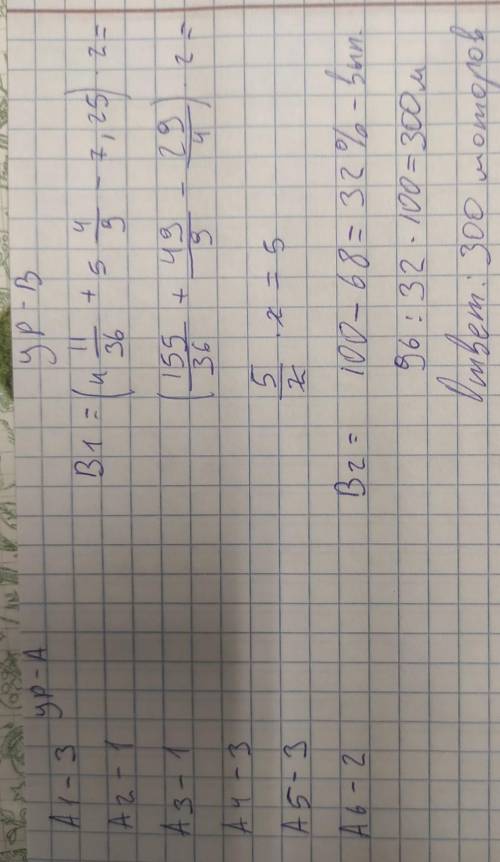 ур-А
А1-3
А2-1
А3-1
А4-3
А5-3
А6-2
ур-В
В1 = (4 11/36 + 5 4/9 - 7,25) · 2 =
(155/36 + 49/9 - 29/4) · 2 =
5/2 · 2 = 5
В2 = 100 - 68 = 32 % - вып.
96 : 32 · 100 = 300 м
Ответ: 300 моторов